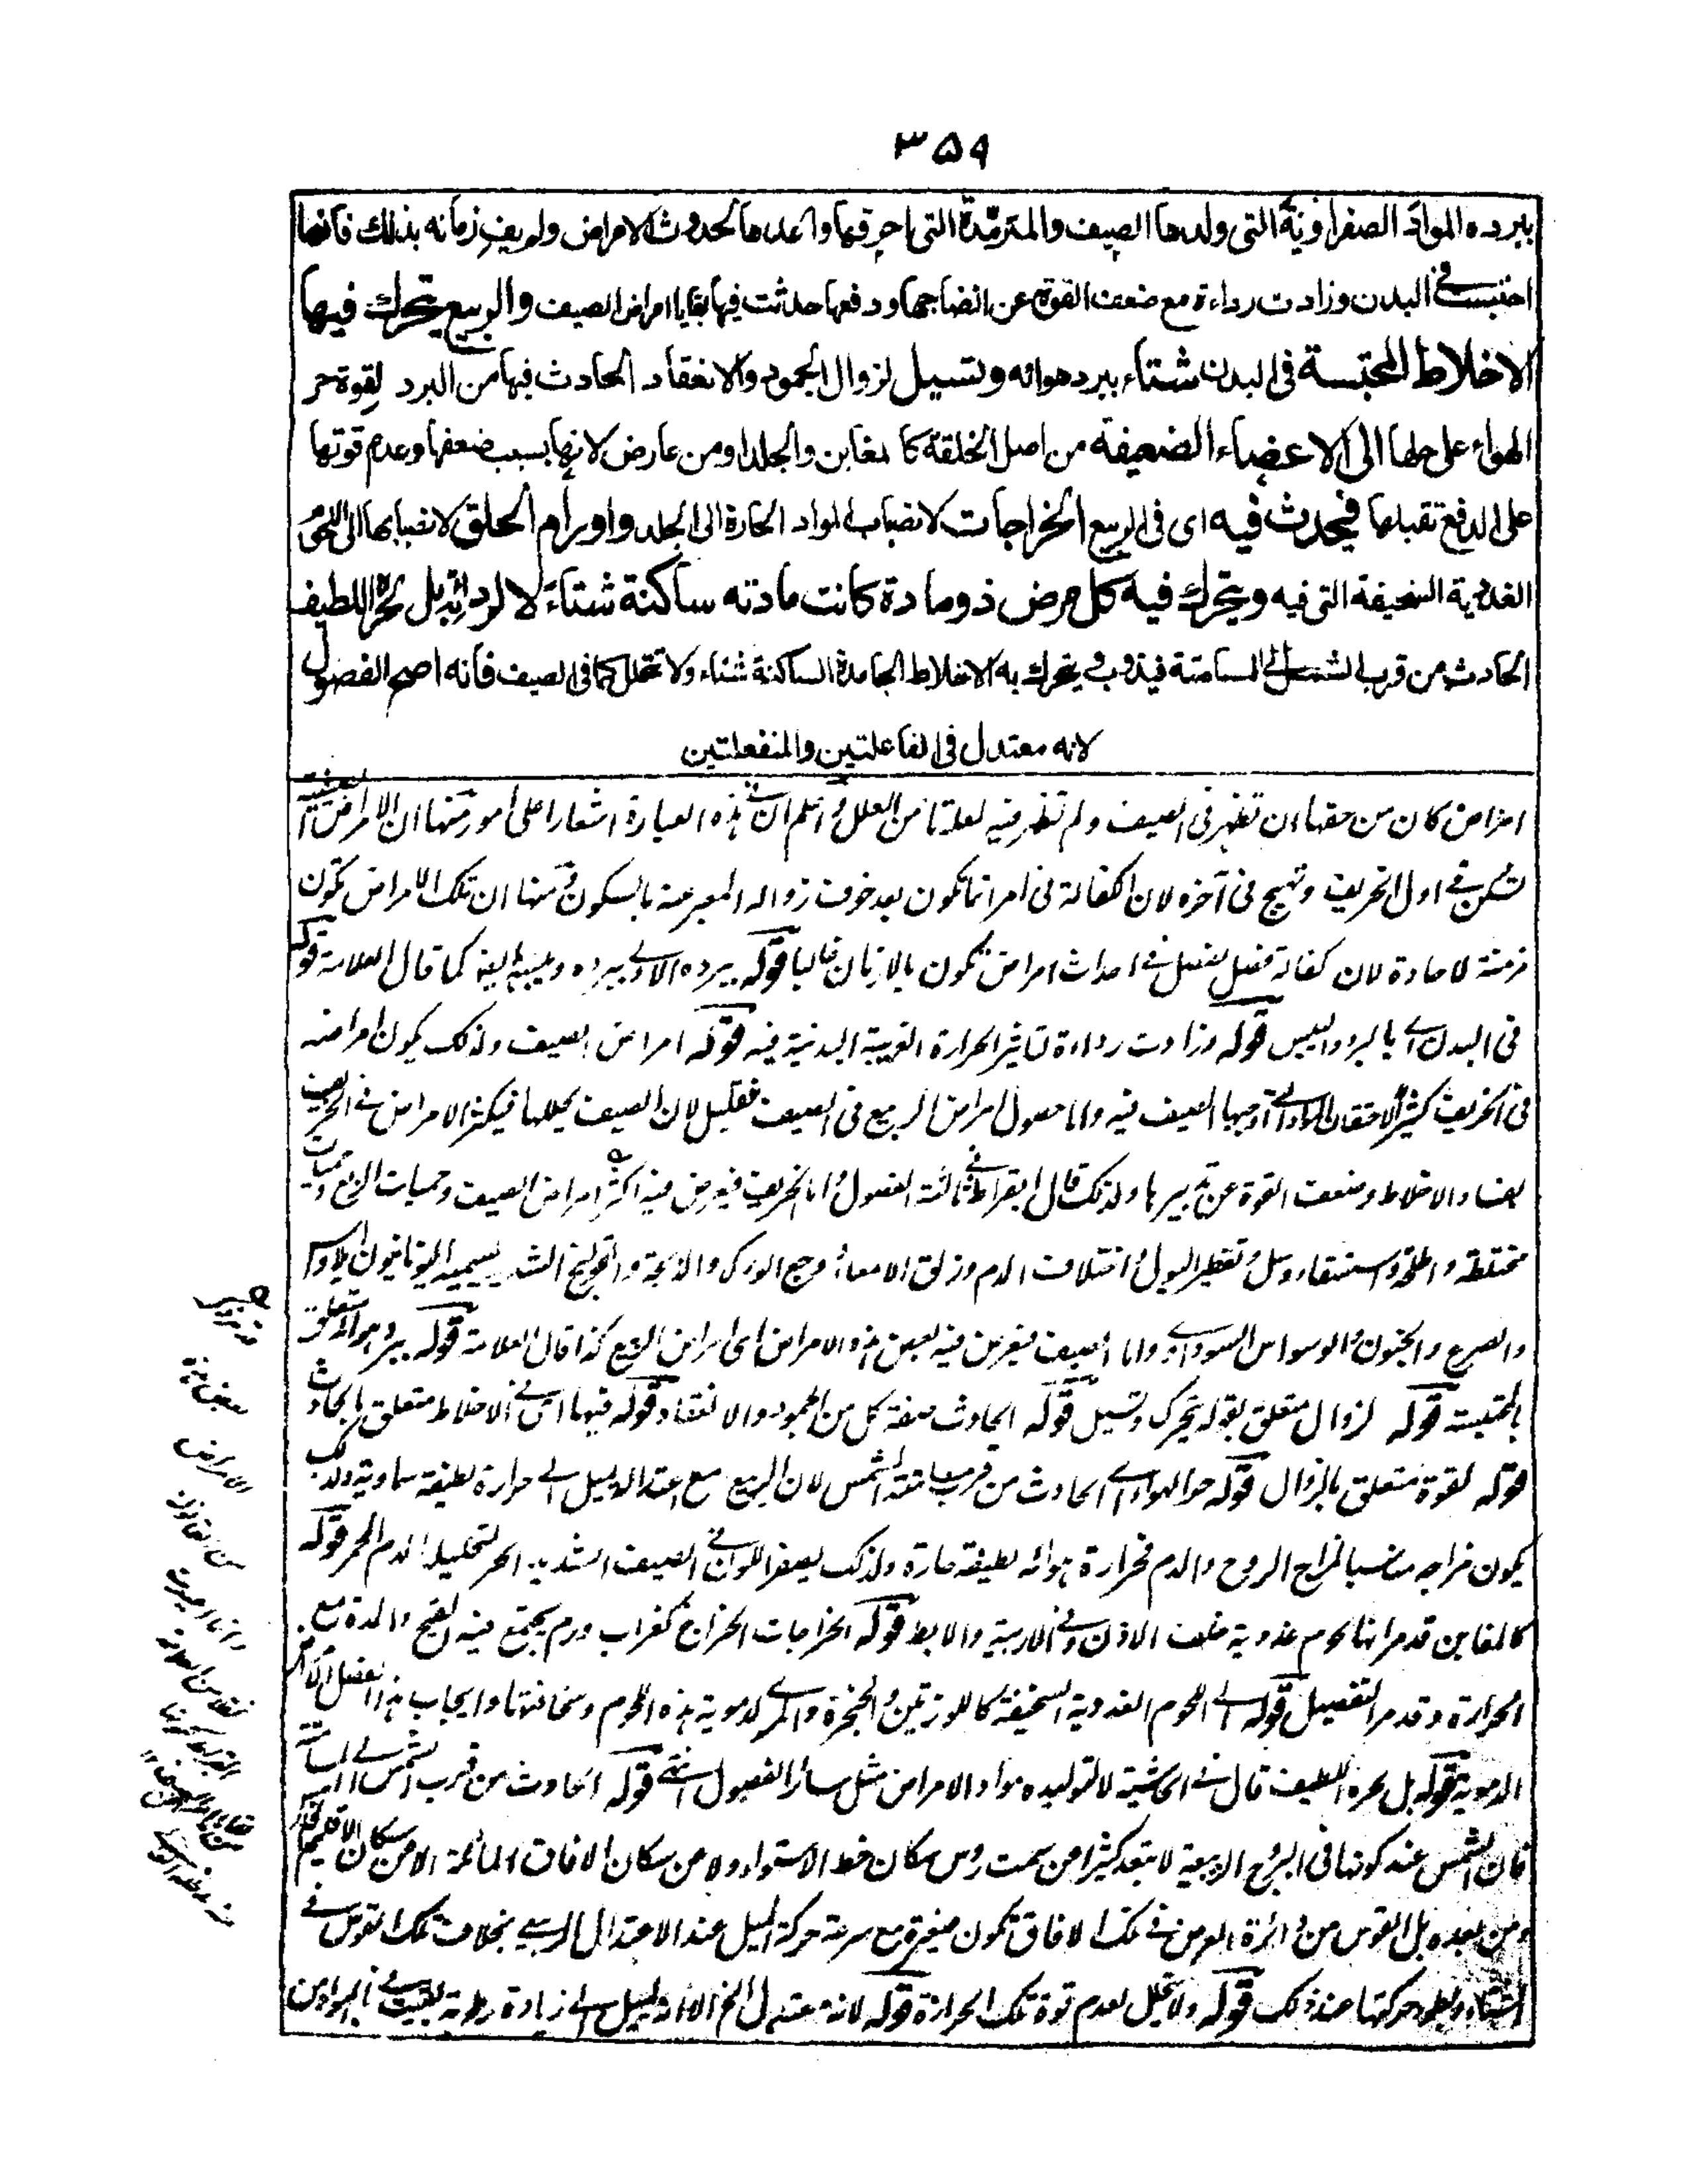 ٣٥٩
ببرده المواد الصفراوية التي ولدها الصيف والمترمدة التي احرقها واعدها لحدوث الامراض ولم يف زمانه بذلك فانها
احتبست في البدن وزادت رداءة مع ضعف القوة عن انضاجها ودفعها حدثت فيها بقايا امراض الصيف والربيع يتحرك فيها
الاخلاط المحتبسة في البدن شتاء ببرد هوائه وتسيل لزوال الجمود والانعقاد الحادث فيها من البرد لقوة حر
الهواء على حلها الى الاعضاء الضعيفة من اصل الخلقة كالمغابن والجلد او من عارض لانها بسبب ضعفها وعدم قوتها
على الدفع تقبلها فيحدث فيه اى في الربيع الخراجات لانصباب المواد الحارة الى الجلد واورام الحلق لانصبابها الى اللحوم
الغددية السخيفة التي فيه ويتحرك فيه كل مرض ذو مادة كانت مادته ساكنة شتاء لا لرداءته بل لحره اللطيف
الحادث من قرب الشمس الى المسامتة فيذوب ويتحرك به الاخلاط الجامدة الساكنة شتاء ولا تتحلل كما في الصيف فانه اصح الفصول
لانه معتدل في الفاعلتين والمنفعلتين
امراض كان من حقها ان تظهر في الصيف ولم تظهر فيه لعلة ما من العلل واعلم ان في هذه العبارة اشعارا على امور منها ان الامراض
تسكن في اول الخريف وتهيج في آخره لان الكفالة في امر انما تكون بعد خوف زواله المعبر عنه بالسكون ومنها ان تلك الامراض تكون
مزمنة لا حادة لان كفالة فصل لفصل في احداث امراض تكون بالازمان غالبا قوله ببرده الاولى ببرده ويبسه ايضا كما قال العلامة قوله
في البدن اے بالبرد واليبس قوله وزادت رداءة لتاثير الحرارة الغريبة البدنية فيه قوله امراض الصيف ولذلك يكون امراضه
في الخريف كثيرا لاحتقان المواد التي اوجبها الصيف فيه واما حصول امراض الربيع في الصيف فقليل لان الصيف يحللها فيكثر الامراض في الخريف
لفساد الاخلاط وضعف القوة عن تدبيرها ولذلك قال ابقراط في ثالثة الفصول واما الخريف فيعرض فيه اكثر امراض الصيف وحميات الربع وحميات
مختلطة واطحلة واستسقاء وسل وتقطير البول واختلاف الدم وزلق الامعاء ووجع الورك والذبحة والقولنج الشديد يسميه اليونانيون ايلاوس
والصرع والجنون والوسواس السوداوي واما الصيف فيعرض فيه بعض هذه الامراض اى امراض الربيع كذا قال العلامة قوله ببرد هوائه متعلق
بالمحتبسة قوله لزوال متعلق بقوله يتحرك وتسيل قوله الحادث صفة كل من الجمود والانعقاد قوله فيها اى في الاخلاط متعلق بالحادث
قوله لقوة متعلق بالزوال قوله حر الهواء اے الحادث من قرب مسامتة الشمس لان الربيع مع اعتداله يميل الى حرارة لطيفة سماوية ولذلك
يكون مزاجه مناسبا لمزاج الروح والدم فحرارة هوائه لطيفة حارة ولذلك يصفر اللون في الصيف الشديد الحر لتحليله الدم المحمر قوله
كالمغابن قد مر انها لحوم غددية خلف الاذن وفي الاربية والابط قوله الخراجات الخراج كغراب ورم يجتمع فيه القيح والمدة مع
الحرارة وقد مر التفصيل قوله الى اللحوم الغددية السخيفة كاللوزتين والحنجرة والمرى لدموية هذه اللحوم وسخافتها وايجاب هذا الفصل الامراض
الدموية قوله بل بحره اللطيف قال في الحاشية لا لتوليده مواد الامراض مثل سائر الفصول انتهى قوله الحادث من قرب الشمس الى المسامتة
فان الشمس عند كونها في البروج الربيعية لا تبعد كثيرا من سمت روس سكان خط الاستواء ولا من سكان الافاق المائلة الا من سكان الاقليم
ومن بعده بل القوس من دائرة العرض في تلك الافاق تكون صغيرة مع سرعة حركة الميل عند الاعتدال الربيعي بخلاف تلك القوس في
الشتاء وبطوء حركتها عند ذلك قوله ولا يتحلل لعدم قوة تلك الحرارة قوله لانه معتدل الخ الا انه يميل الى زيادة رطوبة بقيت في الهواء من